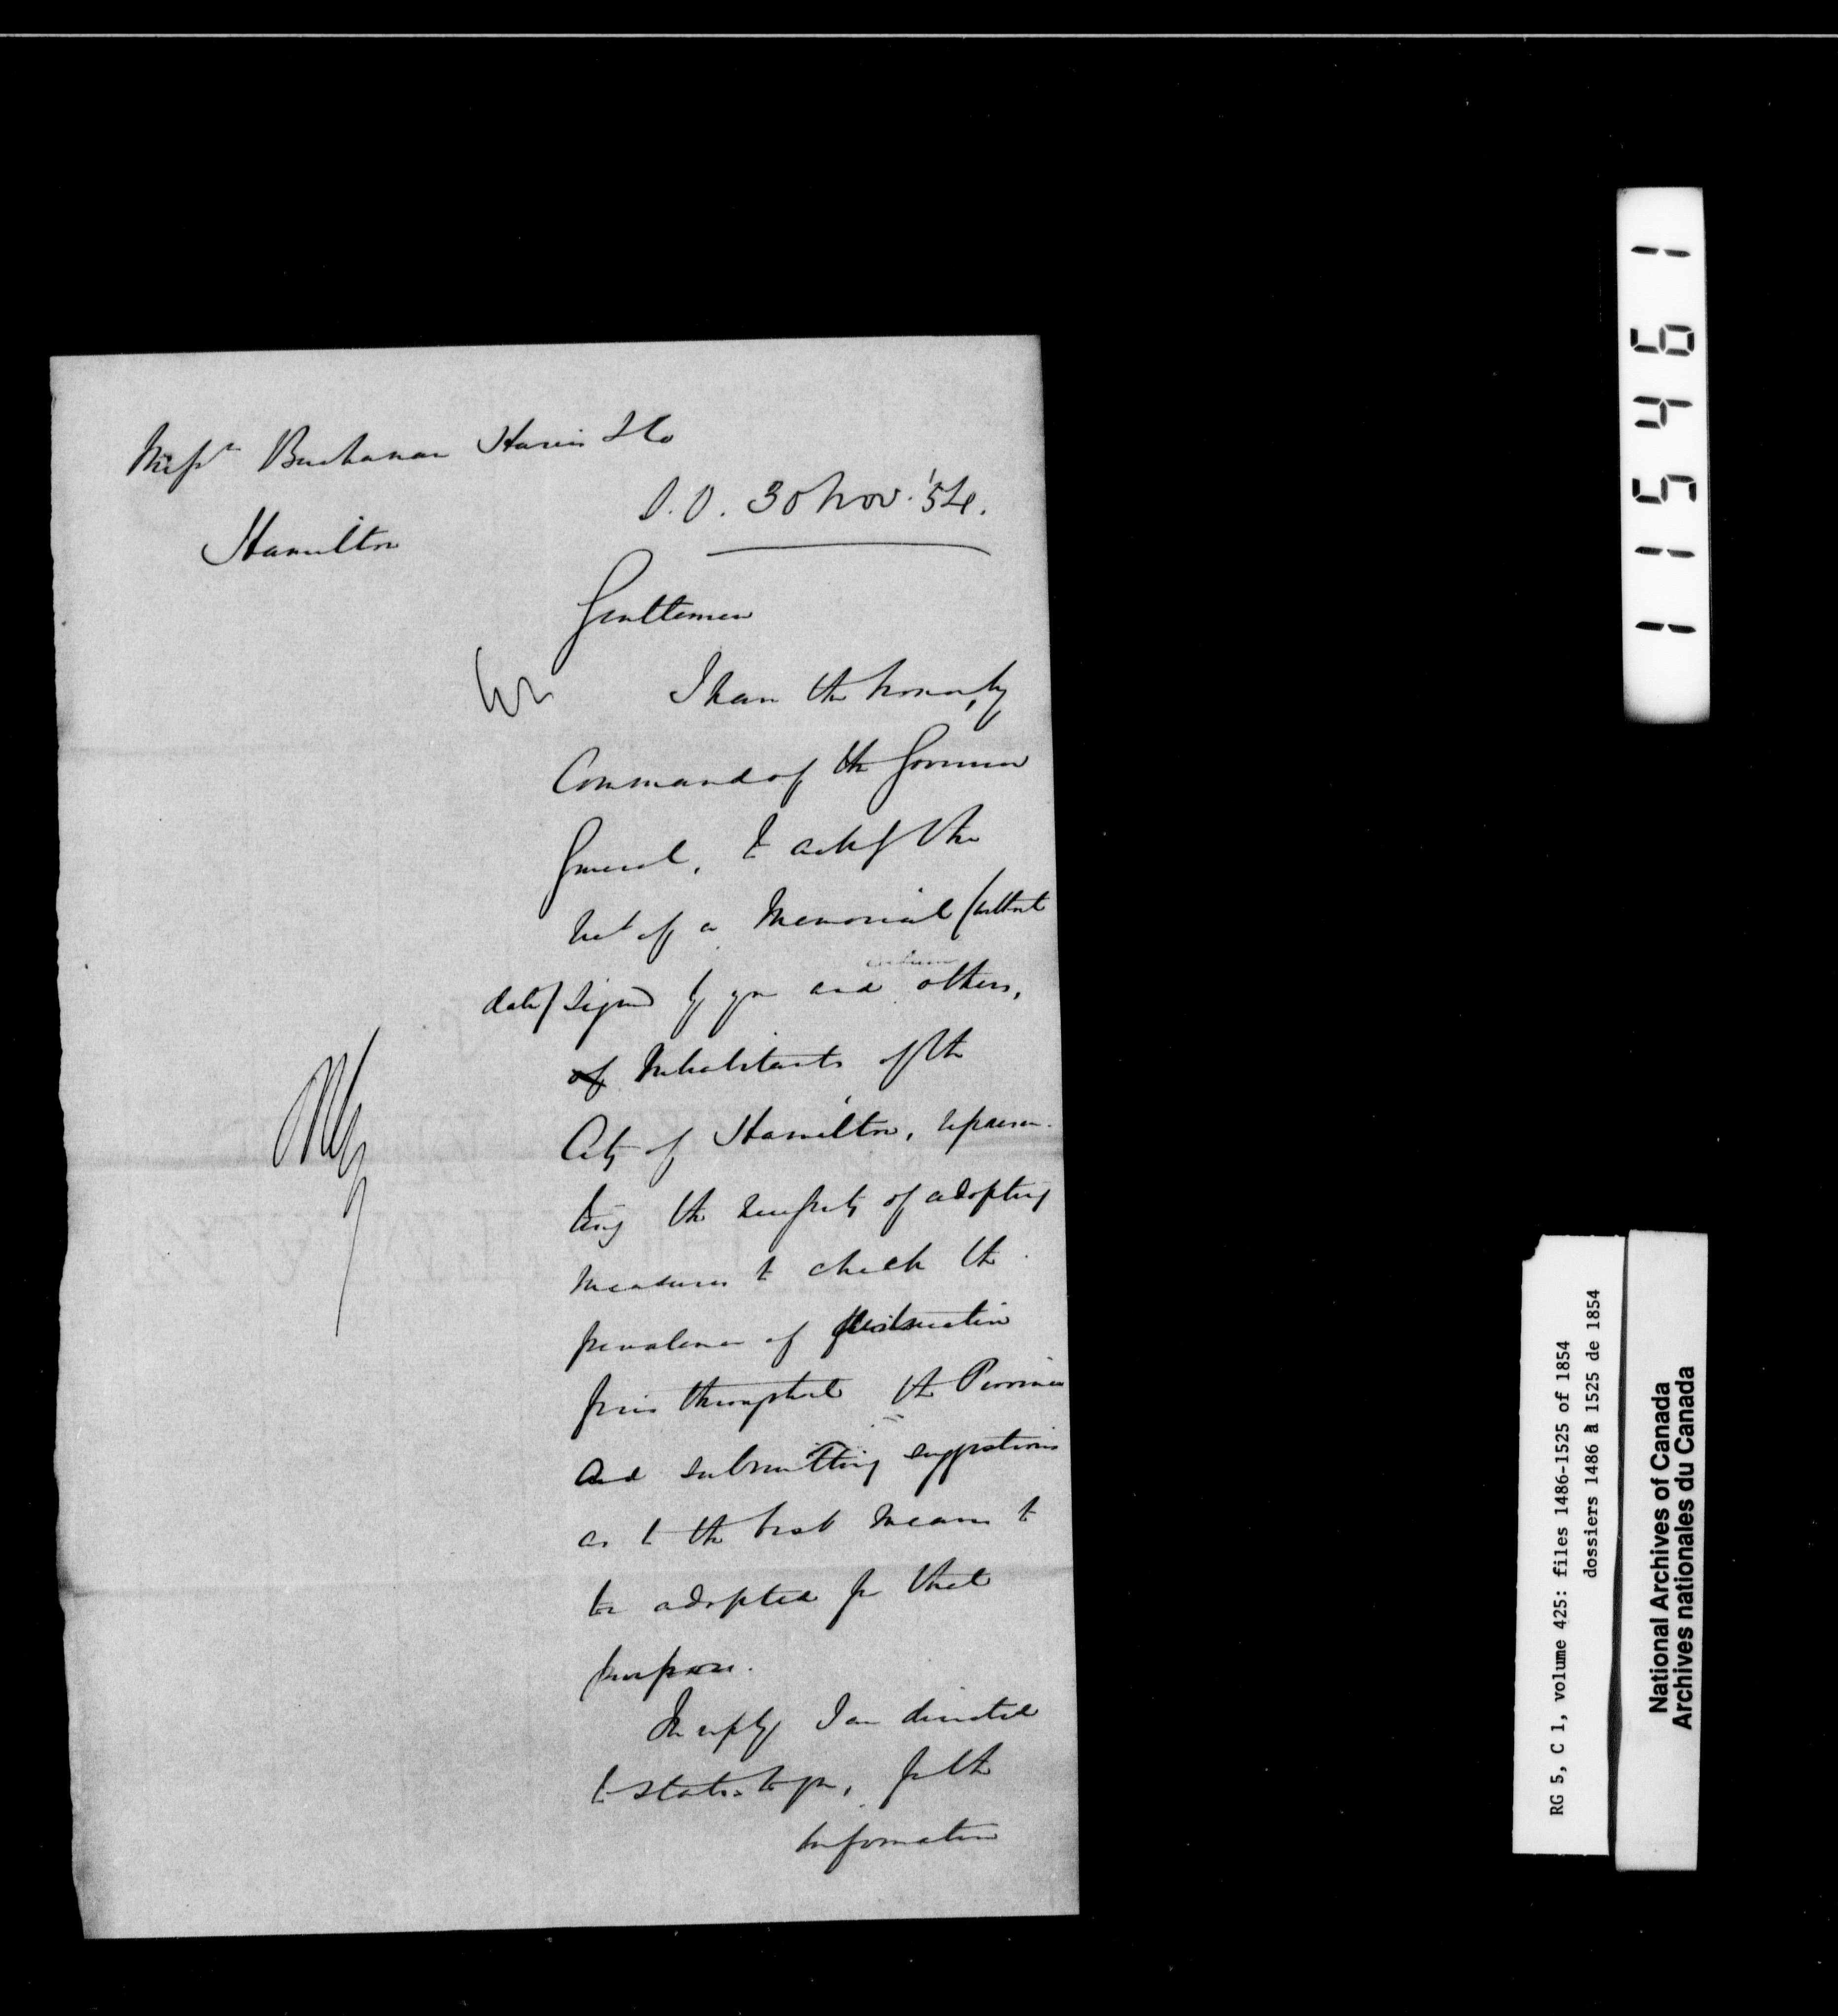 Messrs Buchanan Harris & Co
Hamilton
S.O. 30 Nov. '54.
Gentlemen
I have the honor, by
Command of the Governor
General, to ackg the
rect of a Memorial (without
date) signed by you and others,
of Inhabitants of the
City of Hamilton, represen-
ting the necessity of adopting
measures to check the
prevalence of destructive
fires throughout the Province
and submitting suggestions
as to the best means to
be adopted for that
purpose.
In reply I am directed
to state to you, for the
information
115461
RG 5, C 1, volume 425: files 1486-1525 of 1854
dossiers 1486 à 1525 de 1854
National Archives of Canada
Archives nationales du Canada